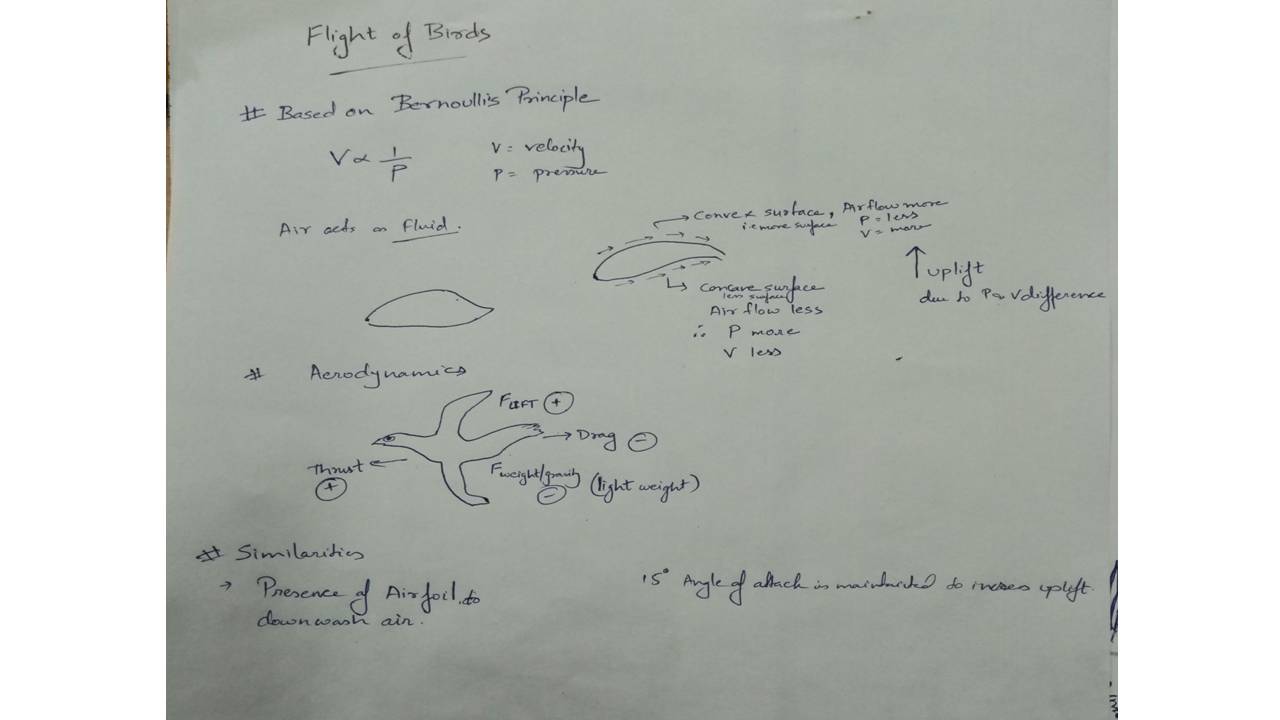 Flight of Birds
# Based on Bernoulli's Principle
V ∝ 1/P
V = velocity
P = pressure
Air acts as Fluid.
→ Convex surface, Airflow more
i.e more surface P = less
V = more
↑ uplift
due to P & V difference
↳ Concave surface
less surface
Air flow less
∴ P more
V less
# Aerodynamics
FLIFT +
→ Drag −
Thrust ←
+
Fweight/gravity (light weight)
−
# Similarities
→ Presence of Airfoil to
downwash air.
15° Angle of attack is maintained to increes uplift.